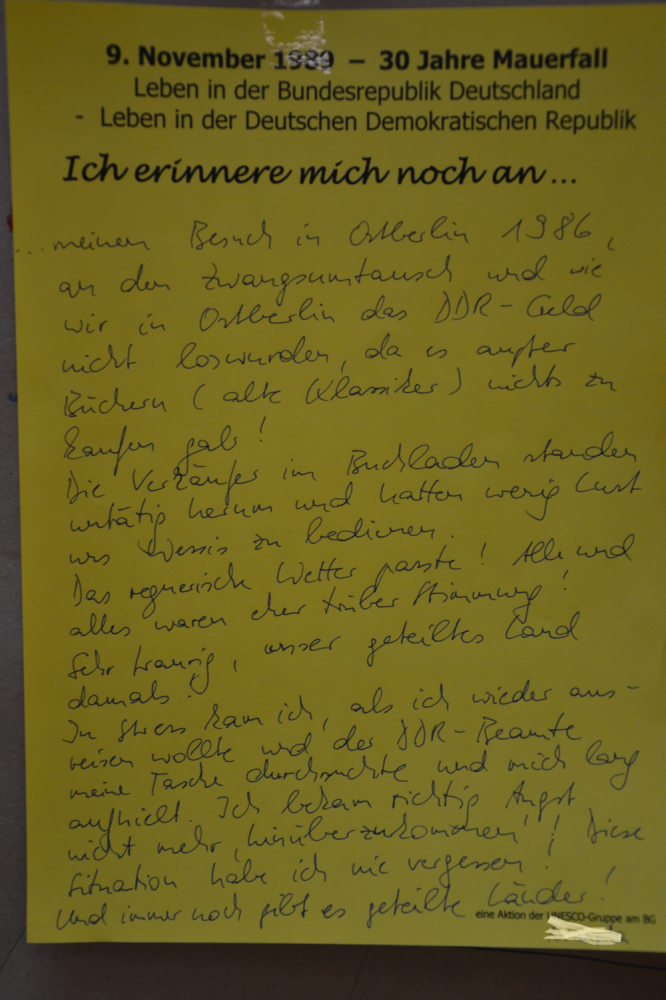 9. November 1989 – 30 Jahre Mauerfall
Leben in der Bundesrepublik Deutschland
- Leben in der Deutschen Demokratischen Republik
Ich erinnere mich noch an...
...meinen Besuch in Ostberlin 1986,
an den Zwangsumtausch und wie
wir in Ostberlin das DDR-Geld
nicht loswurden, da es außer
Büchern (alte Klassiker) nichts zu
kaufen gab!
Die Verkäufer im Buchladen standen
untätig herum und hatten wenig Lust
uns Wessis zu bedienen.
Das regnerische Wetter passte! Alle und
alles waren eher trüber Stimmung!
Sehr traurig, unser geteiltes Land
damals!
In Stress kam ich, als ich wieder aus-
reisen wollte und der DDR-Beamte
meine Tasche durchsuchte und mich lang
aufhielt. Ich bekam richtig Angst
nicht mehr 'hinüberzukommen'! Diese
Situation habe ich nie vergessen!
Und immer noch gibt es geteilte Länder!
eine Aktion der UNESCO-Gruppe am BG